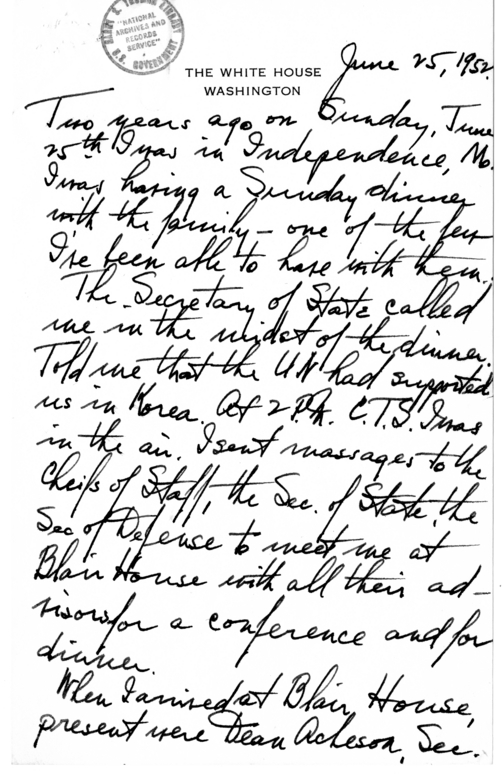 HARRY S. TRUMAN LIBRARY
"NATIONAL
ARCHIVES AND
RECORDS
SERVICE"
U.S. GOVERNMENT
June 25, 1952
THE WHITE HOUSE
WASHINGTON
Two years ago on Sunday, June
25th I was in Independence, Mo.
I was having a Sunday dinner
with the family – one of the few
I've been able to have with them.
The Secretary of State called
me in the midst of the dinner.
Told me that the UN had supported
us in Korea. At 2 P.M. C.T.S. I was
in the air. I sent massages to the
Cheifs of Staff, the Sec. of State, the
Sec of Defense to meet me at
Blair House with all their ad-
visors for a conference and for
dinner.
When I arrived at Blair House,
present were Dean Acheson, Sec.